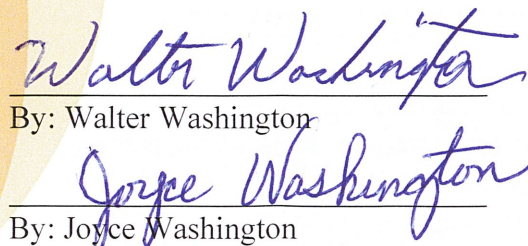 Walter Washington
By: Walter Washington
Joyce Washington
By: Joyce Washington